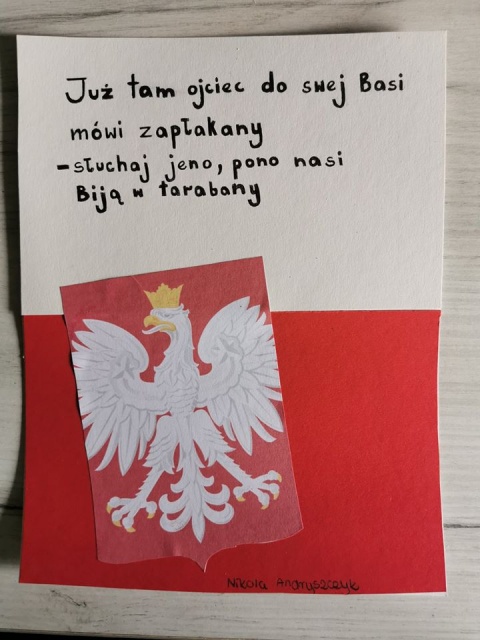 Już tam ojciec do swej Basi
mówi zapłakany
-słuchaj jeno, pono nasi
Biją w tarabany
Nikola Andryszczyk